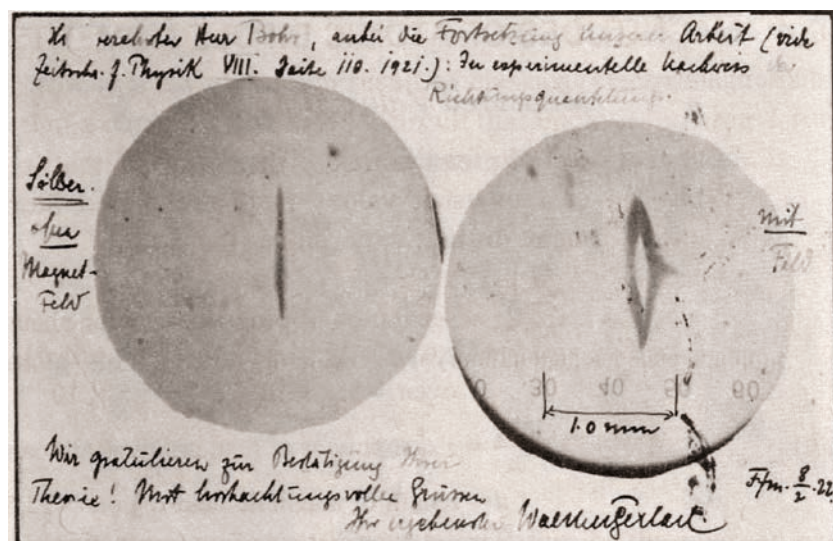 verehrter Herr Bohr, anbei die Fortsetzung unserer Arbeit (vide
Zeitschr. f. Physik VIII. Seite 110. 1921.): Der experimentelle Nachweis der
Richtungsquantelung.
Silber.
ohne
Magnet-
Feld
mit
Feld
30 40 50 60
1.0 mm
Wir gratulieren zur Bestätigung Ihrer
Theorie! Mit hochachtungsvollen Grüssen
Ihr ergebenster Walther Gerlach.
F/m. 8/2.22.